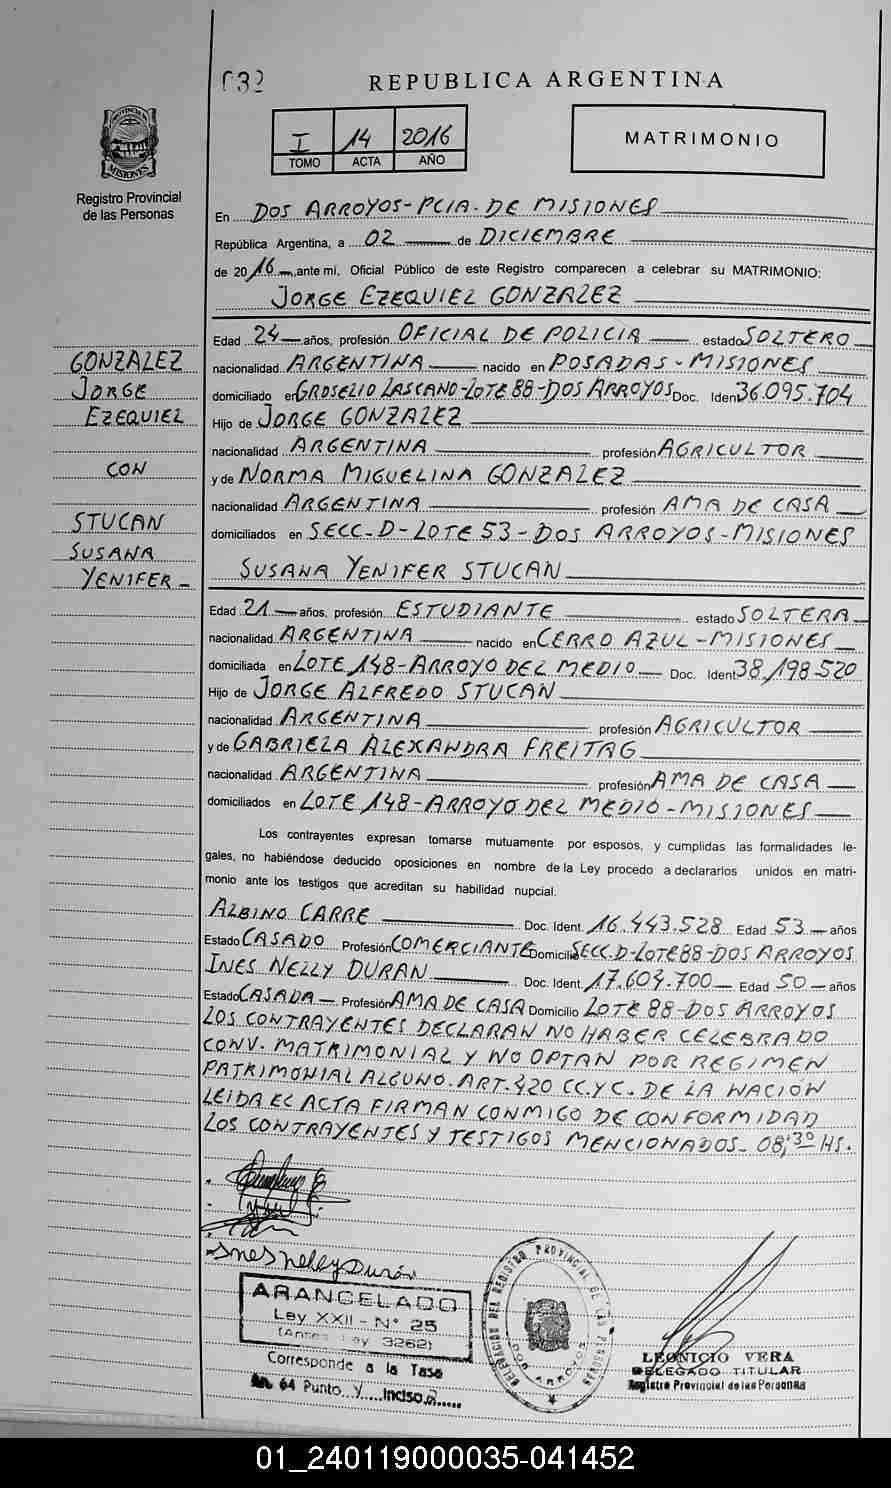 032
REPUBLICA ARGENTINA
I 14 2016
TOMO ACTA AÑO
MATRIMONIO
Registro Provincial
de las Personas
En DOS ARROYOS-PCIA. DE MISIONES
República Argentina, a 02 de DICIEMBRE
de 2016, ante mi, Oficial Público de este Registro comparecen a celebrar su MATRIMONIO:
JORGE EZEQUIEL GONZALEZ
Edad 24 años, profesión OFICIAL DE POLICIA estado SOLTERO
nacionalidad ARGENTINA nacido en POSADAS-MISIONES
domiciliado en GROSELIO LASCANO-LOTE 88-DOS ARROYOS Doc. Iden 36.095.704
Hijo de JORGE GONZALEZ
nacionalidad ARGENTINA profesión AGRICULTOR
y de NORMA MIGUELINA GONZALEZ
nacionalidad ARGENTINA profesión AMA DE CASA
domiciliados en SECC-D-LOTE 53-DOS ARROYOS-MISIONES
GONZALEZ
JORGE
EZEQUIEL
CON
STUCAN
SUSANA
YENIFER-
SUSANA YENIFER STUCAN
Edad 21 años, profesión ESTUDIANTE estado SOLTERA
nacionalidad ARGENTINA nacido en CERRO AZUL-MISIONES
domiciliada en LOTE 148-ARROYO DEL MEDIO Doc. Ident 38.198.520
Hijo de JORGE ALFREDO STUCAN
nacionalidad ARGENTINA profesión AGRICULTOR
y de GABRIELA ALEXANDRA FREITAG
nacionalidad ARGENTINA profesión AMA DE CASA
domiciliados en LOTE 148-ARROYO DEL MEDIO-MISIONES
Los contrayentes expresan tomarse mutuamente por esposos, y cumplidas las formalidades le-
gales, no habiéndose deducido oposiciones en nombre de la Ley procedo a declararlos unidos en matri-
monio ante los testigos que acreditan su habilidad nupcial.
ALBINO CARRE Doc. Ident. 16.443.528 Edad 53 años
Estado CASADO Profesión COMERCIANTE Domicilio SECC.D-LOTE 88-DOS ARROYOS
INES NELLY DURAN Doc. Ident. 17.604.700 Edad 50 años
Estado CASADA Profesión AMA DE CASA Domicilio LOTE 88-DOS ARROYOS
LOS CONTRAYENTES DECLARAN NO HABER CELEBRADO
CONV. MATRIMONIAL Y NO OPTAN POR REGIMEN
PATRIMONIAL ALGUNO. ART. 420 CC.Y C. DE LA NACION
LEIDA EL ACTA FIRMAN CONMIGO DE CONFORMIDAD
LOS CONTRAYENTES Y TESTIGOS MENCIONADOS- 08:30 HS.
Ines Nelly Durán
ARANCELADO
Ley XXII - Nº 25
(Antes Ley 3262)
Corresponde a la Tasa
An. 64 Punto Y Inciso
DELEGACION DEL REGISTRO PROVINCIAL DE LAS PERSONAS
DOS ARROYOS
LEONICIO VERA
DELEGADO TITULAR
Registro Provincial de las Personas
01_240119000035-041452